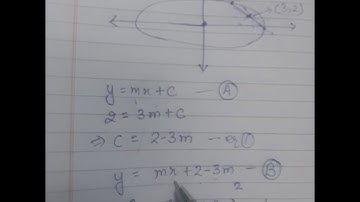 (3,2)
y = mx + C — Ⓐ
2 = 3m + C
⇒ C = 2-3m — eq ①
y = mx + 2-3m — Ⓑ
2